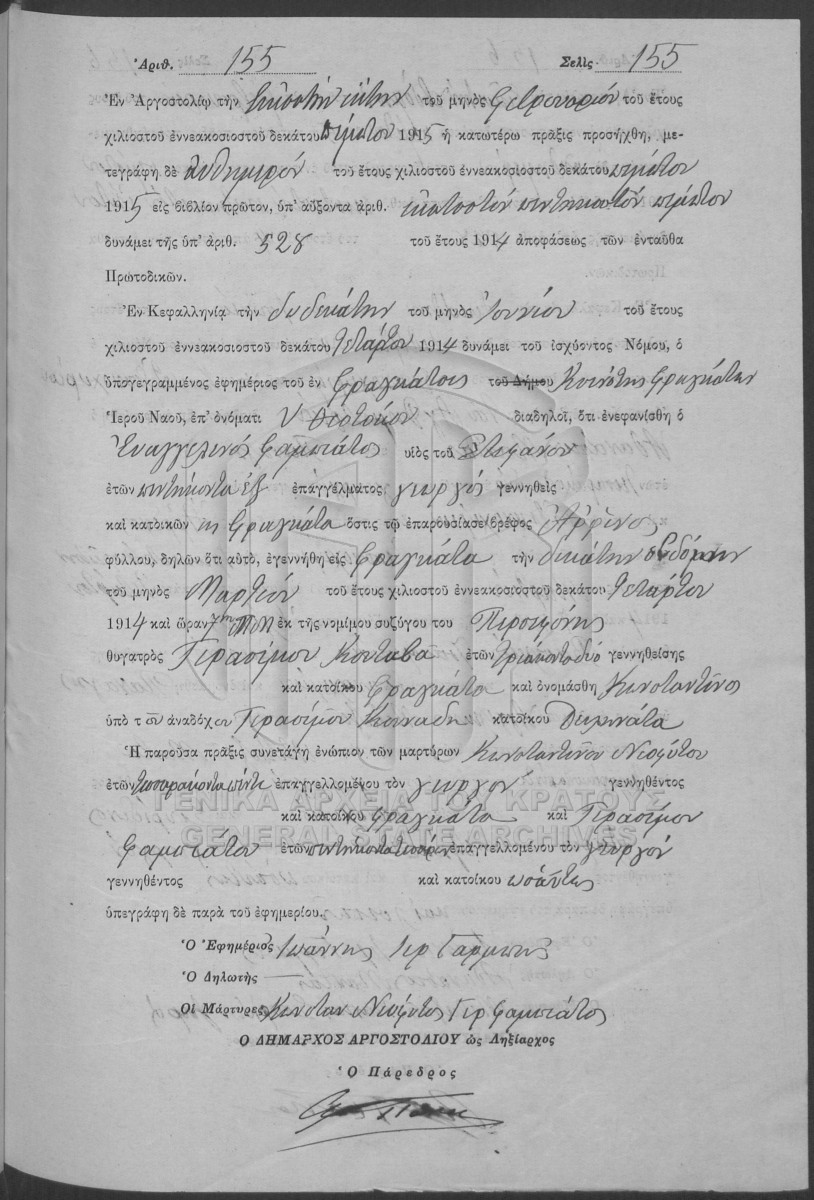 Ἀριθ. 155 Σελὶς 155
Ἐν Ἀργοστολίῳ τὴν εἰκοστὴν ἕκτην τοῦ μηνὸς Φεβρουαρίου τοῦ ἔτους
χιλιοστοῦ ἐννεακοσιοστοῦ δεκάτου πέμπτου 1915 ἡ κατωτέρω πρᾶξις προσήχθη, με-
τεγράφη δὲ αὐθημερόν τοῦ ἔτους χιλιοστοῦ ἐννεακοσιοστοῦ δεκάτου πέμπτου
1915 εἰς βιβλίον πρῶτον, ὑπ' αὔξοντα ἀριθ. ἑκατοστόν πεντηκοστόν πέμπτον
δυνάμει τῆς ὑπ' ἀριθ. 528 τοῦ ἔτους 1914 ἀποφάσεως τῶν ἐνταῦθα
Πρωτοδικῶν.
Ἐν Κεφαλληνίᾳ τὴν δωδεκάτην τοῦ μηνὸς Ἰουνίου τοῦ ἔτους
χιλιοστοῦ ἐννεακοσιοστοῦ δεκάτου τετάρτου 1914 δυνάμει τοῦ ἰσχύοντος Νόμου, ὁ
ὑπογεγραμμένος ἐφημέριος τοῦ ἐν Φραγκάτοις τοῦ Δήμου Κοινότης Φραγκάτων
Ἱεροῦ Ναοῦ, ἐπ' ὀνόματι Υ Θεοτόκου διαδηλοῖ, ὅτι ἐνεφανίσθη ὁ
Εὐαγγελινός Φαμπιάτος υἱὸς τοῦ Στεφάνου
ἐτῶν πεντήκοντα ἕξ ἐπαγγέλματος γεωργός γεννηθεὶς
καὶ κατοικῶν εἰς Φραγκάτα ὅστις τῷ ἐπαρουσίασε βρέφος Ἄρρενος
φύλλου, δηλῶν ὅτι αὐτὸ, ἐγεννήθη εἰς Φραγκάτα τὴν δεκάτην ἑβδόμην
τοῦ μηνὸς Μαρτίου τοῦ ἔτους χιλιοστοῦ ἐννεακοσιοστοῦ δεκάτου τετάρτου
1914 καὶ ὥραν 7ην ΠΜ ἐκ τῆς νομίμου συζύγου του Περσεφόνης
θυγατρὸς Γερασίμου Κονταβᾶ ἐτῶν τριάκοντα δύο γεννηθείσης
καὶ κατοίκου Φραγκάτα καὶ ὀνομάσθη Κωνσταντῖνος
ὑπὸ τοῦ ἀναδόχου Γερασίμου κατοίκου Δειλινάτα
Ἡ παροῦσα πρᾶξις συνετάγη ἐνώπιον τῶν μαρτύρων Κωνσταντίνου Νεοφύτου
ἐτῶν τεσσαράκοντα πέντε ἐπαγγελλομένου τὸν γεωργόν γεννηθέντος
καὶ κατοίκου Φραγκάτα καὶ Γερασίμου
ΓΕΝΙΚΑ ΑΡΧΕΙΑ ΤΟΥ ΚΡΑΤΟΥΣ
GENERAL STATE ARCHIVES
Φαμπιάτου ἐτῶν πεντήκοντα τεσσάρων ἐπαγγελλομένου τὸν γεωργόν
γεννηθέντος καὶ κατοίκου ὡσαύτως
ὑπεγράφη δὲ παρὰ τοῦ ἐφημερίου.
Ὁ Ἐφημέριος Ἰωάννης
Ὁ Δηλωτὴς
Οἱ Μάρτυρες Κωνσταν Νεόφυτος Γερ Φαμπιάτος
Ο ΔΗΜΑΡΧΟΣ ΑΡΓΟΣΤΟΛΙΟΥ ὡς Ληξίαρχος
Ὁ Πάρεδρος